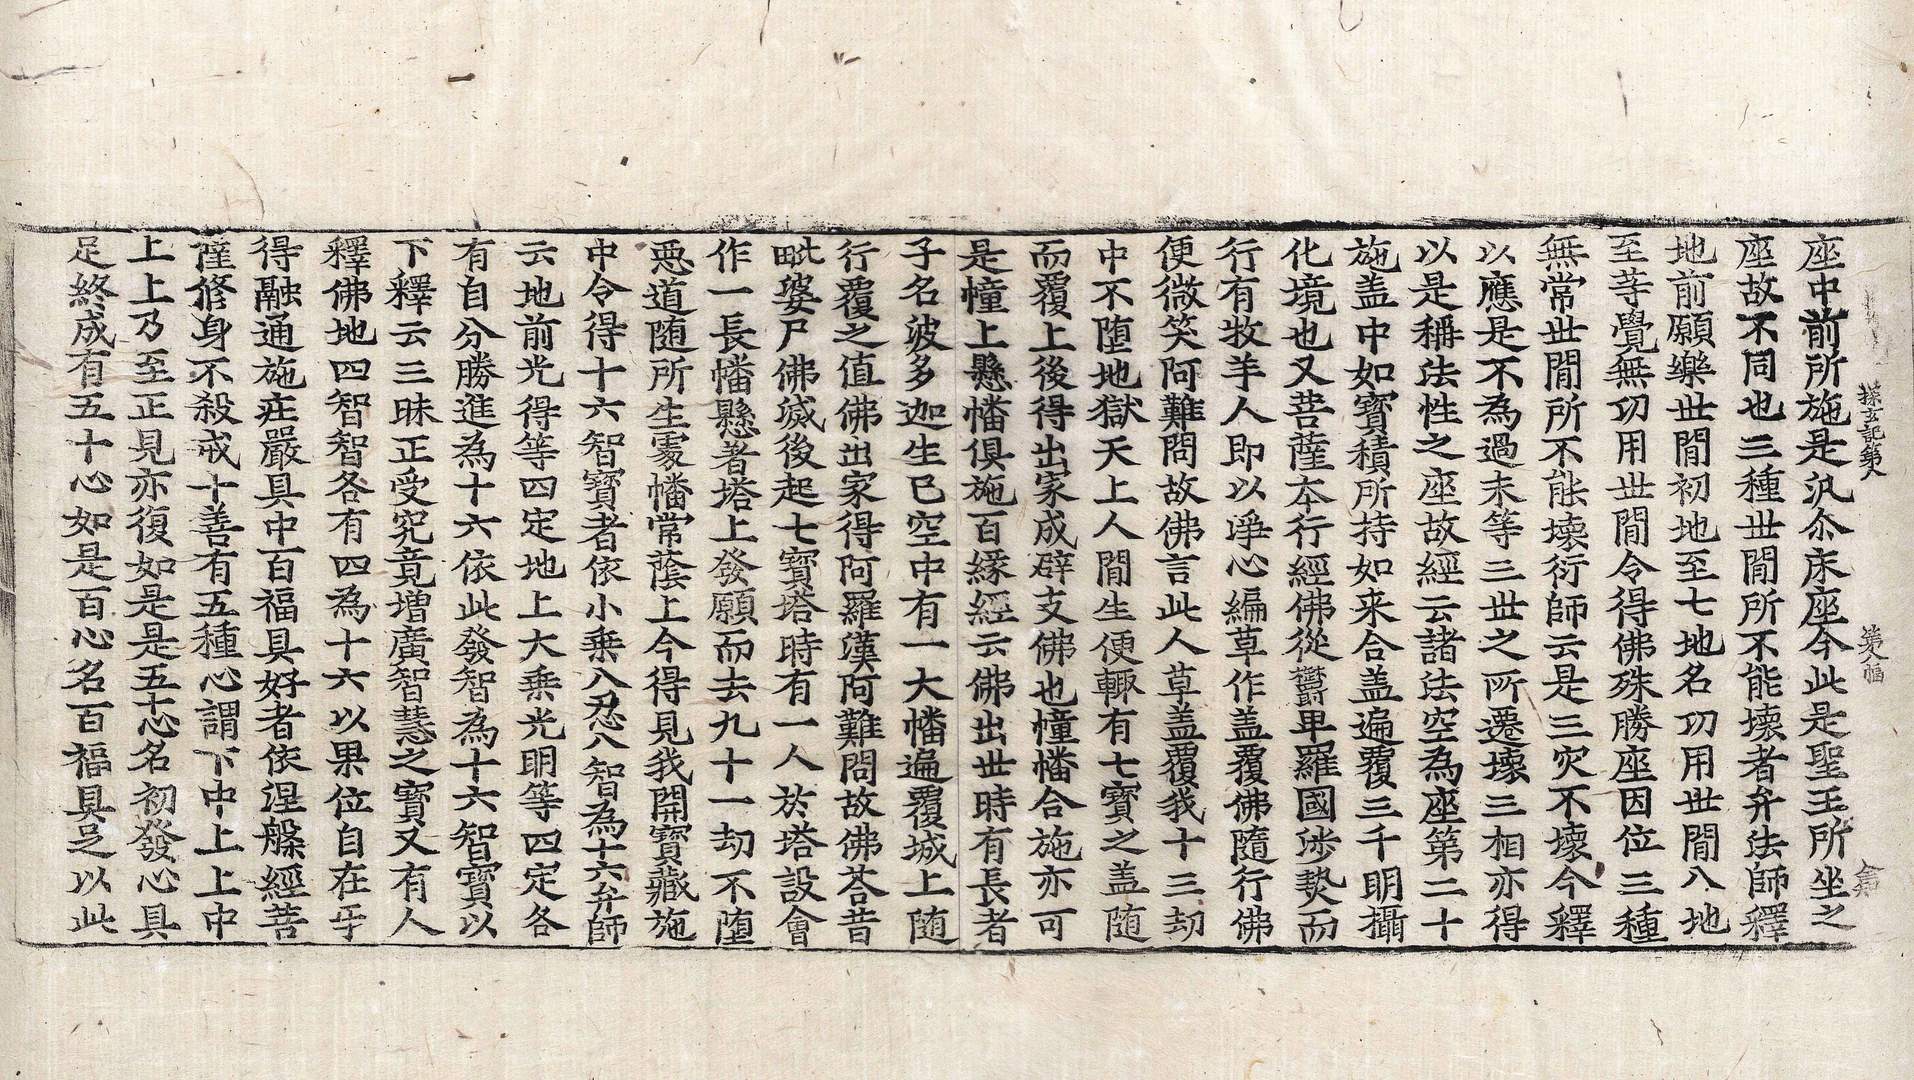 探玄記第八 第八幅
座中前所施是汎尒床座今此是聖王所坐之
座故不同也三種世間所不能壞者弁法師釋
地前願樂世間初地至七地名功用世間八地
至等覺無功用世間令得佛殊勝座因位三種
無常世間所不能壞衍師云是三灾不壞今釋
以應是不為過未等三世之所遷壞三相亦得
以是稱法性之座故經云諸法空為座第二十
施盖中如寶積所持如来合盖遍覆三千明攝
化境也又菩薩本行經佛從欝卑羅國涉𭓇而
行有牧羊人即以淨心編草作盖覆佛隨行佛
便微笑阿難問故佛言此人草盖覆我十三劫
中不墮地獄天上人間生便輙有七寶之盖随
而覆上後得出家成辟支佛也幢幡合施亦可
是幢上懸幡俱施百緣經云佛出世時有長者
子名波多迦生已空中有一大幡遍覆城上随
行覆之值佛出家得阿羅漢阿難問故佛荅昔
毗婆尸佛滅後起七寶塔時有一人於塔設會
作一長幡懸著塔上發願而去九十一劫不墮
惡道随所生處幡常蔭上今得見我開寶藏施
中令得十六智寶者依小乗八忍八智為十六弁師
云地前光得等四定地上大乗光明等四定各
有自分勝進為十六依此發智為十六智寶以
下釋云三昧正受究竟增廣智慧之寶又有人
釋佛地四智智各有四為十六以果位自在乎
得融通施庄嚴具中百福具好者依涅槃經菩
薩修身不殺戒十善有五種心謂下中上上中
上上乃至正見亦復如是是五十心名初發心具
足終成有五十心如是百心名百福具足以此